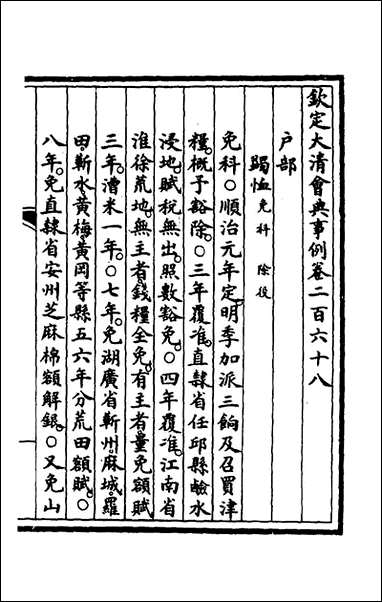 欽定大清會典事例卷二百六十八
戶部
蠲恤免科 除役
免科○順治元年定。明季加派三餉及召買津
糧。概予豁除。○三年覆准。直隸省任邱縣鹼水
浸地。賦稅無出。照數豁免。○四年覆准。江南省
淮徐荒地。無主者錢糧全免。有主者量免額賦
三年。漕米一年。○七年。免湖廣省蘄州。麻城。羅
田。蘄水。黃梅。黃岡等縣五六年分荒田額賦。○
八年。免直隸省安州芝麻棉額解銀。○又免山